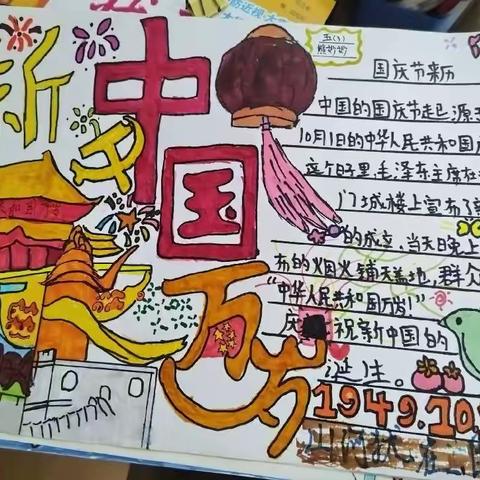 新中国
万岁
五(3)
国庆节来历
中国的国庆节起源
10月1日的中华人民共和国
这个日子里,毛泽东主席在
门城楼上宣布了
的成立,当天晚上
布的烟火铺天盖地,群众
"中华人民共和国万岁!"
庆祝新中国的
诞生。
1949.10
山河